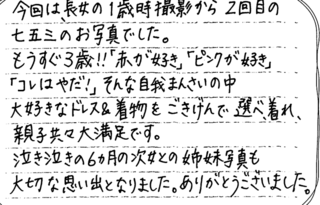 今回は、長女の1歳時撮影から2回目の
七五三のお写真でした。
もうすぐ3歳!!「赤が好き」「ピンクが好き」
「コレはやだ!」そんな自我まんさいの中
大好きなドレス&着物をごきげんで選べ着れ、
親子共々大満足です。
泣き泣きの6ヵ月の次女との姉妹写真も
大切な思い出となりました。ありがとうございました。